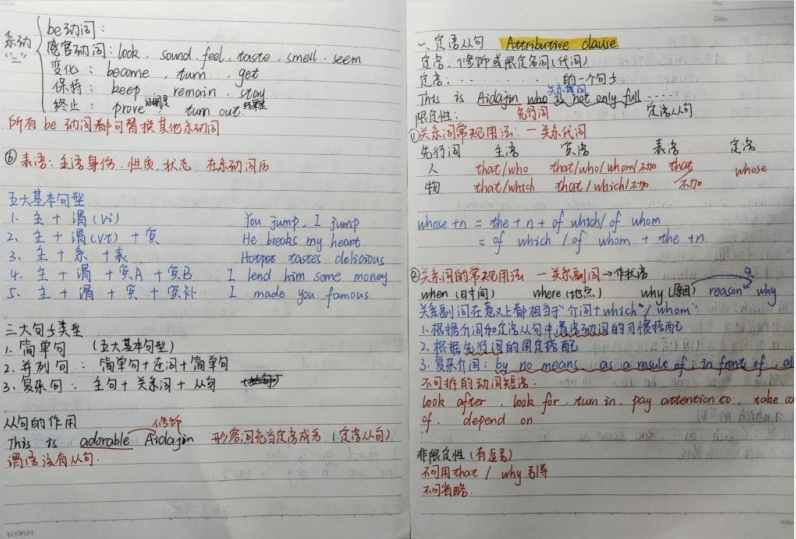 系动
"二"
be动词：
感官动词：look, sound, feel, taste, smell, seem
变化：became, turn, get
保持：keep, remain, stay
终止：prove turn out
所有be动词都可替换其他系动词
⑥ 表语：主语身份、性质、状态，在系动词后
五大基本句型
1. 主 + 谓(vi) You jump, I jump
2. 主 + 谓(vt) + 宾 He breaks my heart
3. 主 + 系 + 表 Hotpot tastes delicious
4. 主 + 谓 + 宾A + 宾B I lend him some money
5. 主 + 谓 + 宾 + 宾补 I made you famous
三大句子类型
1. 简单句 (五大基本句型)
2. 并列句：简单句+连词+简单句
3. 复杂句：主句+关系词+从句
从句的作用
修饰
This is adorable Aidajin 形容词充当定语成为(定语从句)
谓语没有从句.
一、定语从句 Attributive clause
定语：修饰或限定名词(代词)
定语：……的一个句子
关系代词
This is Aidajin who is not only full ……
限定性： 先行词 定语从句
①关系词常规用法：一关系代词
先行词 主语 宾语 表语 定语
人 that/who that/who/whom/不加 that whose
物 that/which that/which/不加 不加
whose+n = the+n+of which/of whom
= of which / of whom + the +n
②关系词的常规用法 一关系副词→作状语
when (时间) where (地点) why (原因) reason why
关系副词在意义上都相当于"介词+which"/"whom"
1. 根据介词和定语从句中谓语动词的习惯搭配
2. 根据先行词的固定搭配
3. 复杂介词：by no means, as a result of, in front of,
不可拆的动词短语：
look after, look for, turn in, pay attention to, take ca
of, depend on
非限定性 (有逗号)
不可用that / why 引导
不可省略.